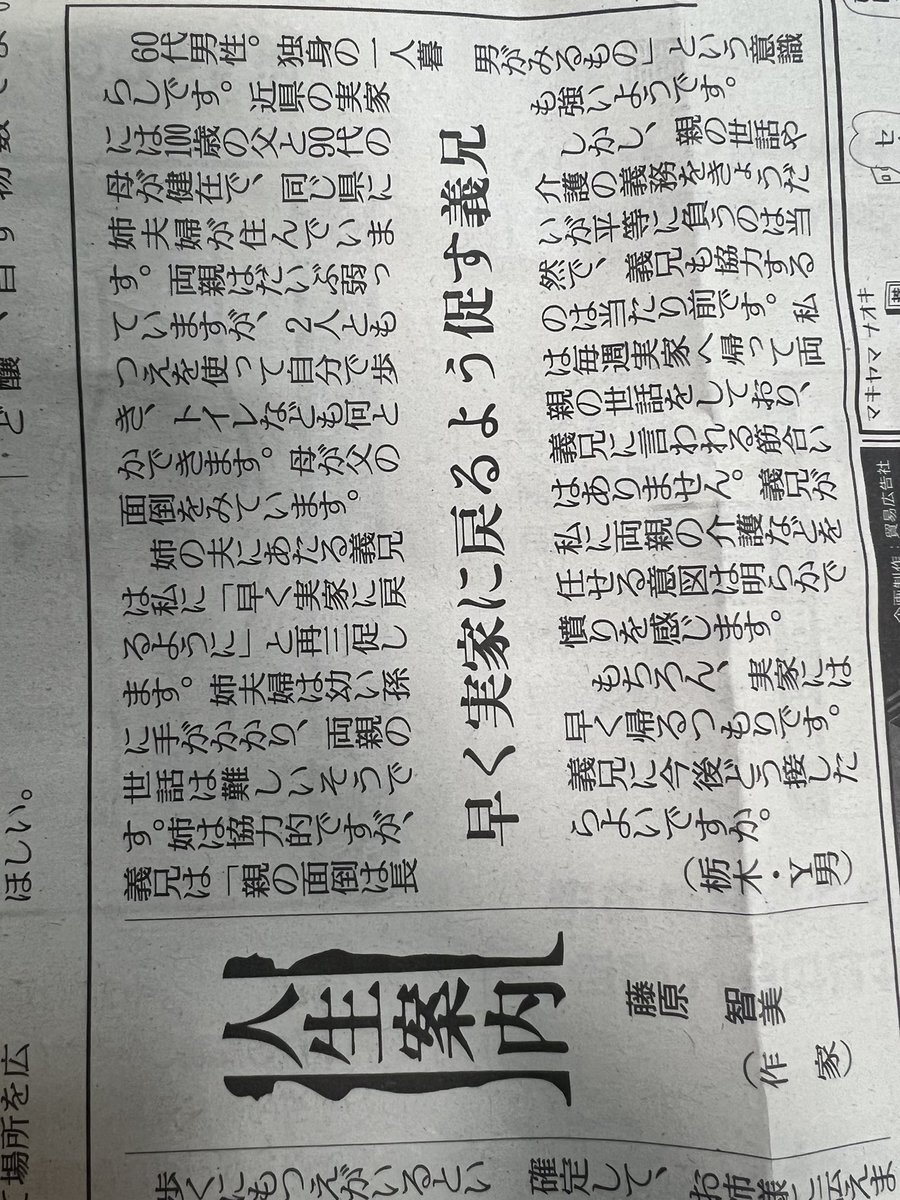 早く実家に戻るよう促す義兄
60代男性。独身の一人暮
らしです。近県の実家
には100歳の父と90代の
母が健在で、同じ県に
姉夫婦が住んでいま
す。両親はだいぶ弱っ
ていますが、2人とも
つえを使って自分で歩
き、トイレなども何と
かできます。母が父の
面倒をみています。
姉の夫にあたる義兄
は私に「早く実家に戻
るように」と再三促し
ます。姉夫婦は幼い孫
に手がかかり、両親の
世話は難しいそうで
す。姉は協力的ですが、
義兄は「親の面倒は長
男がみるもの」という意識
も強いようです。
しかし、親の世話や
介護の義務をきょうだ
いが平等に負うのは当
然で、義兄も協力する
のは当たり前です。私
は毎週実家へ帰って両
親の世話をしており、
義兄に言われる筋合い
はありません。義兄が
私に両親の介護などを
任せる意図は明らかで
憤りを感じます。
もちろん、実家には
早く帰るつもりです。
義兄に今後どう接した
らよいですか。
(栃木・Y男)
人生案内
藤原 智美
(作家)
ほしい。
場所を広
歩くにもつえがいるとい
確定して、
お市様
マキヤマ ナオキ
貿易広告社